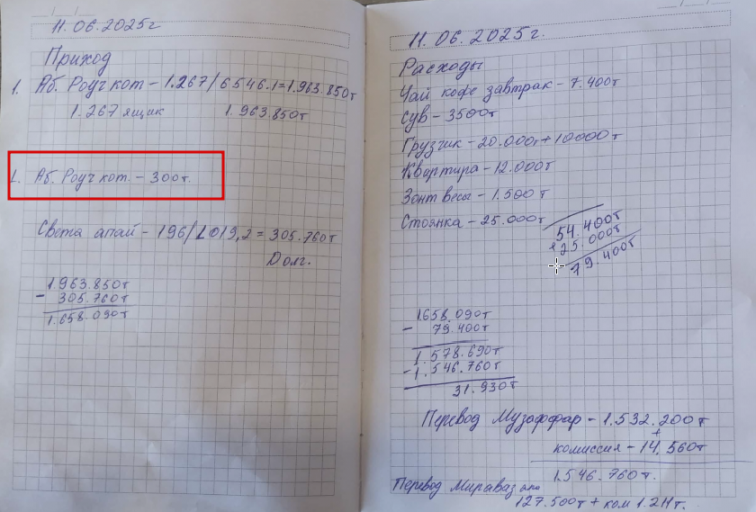 11.06.2025г
Приход
1. Аб. Роучкот - 1.267/6546.1=1.963.850т
1.267 ящак 1.963.850т
1. Аб. Роучкот. - 300т.
Света апай - 196/1019,2 = 305.760т
Долг.
1.963.850т
- 305.760т
1.658.090т
11.06.2025г.
Расходы
Чай кофе завтрак - 7.400т
Сув - 3500т
Грузчик - 20.000т+10000т
Квартира - 12.000т
Зонт весы - 1.500т
Стоянка - 25.000т
54.400т
+25.000т
79.400т
1658.090т
- 79.400т
1.578.690т
- 1.546.760т
31.930т
Перевод Музаффар - 1.532.200т
+
комиссия - 14.560т
1.546.760т.
Перевод Мираваз
127.500т + ком 1.211т.